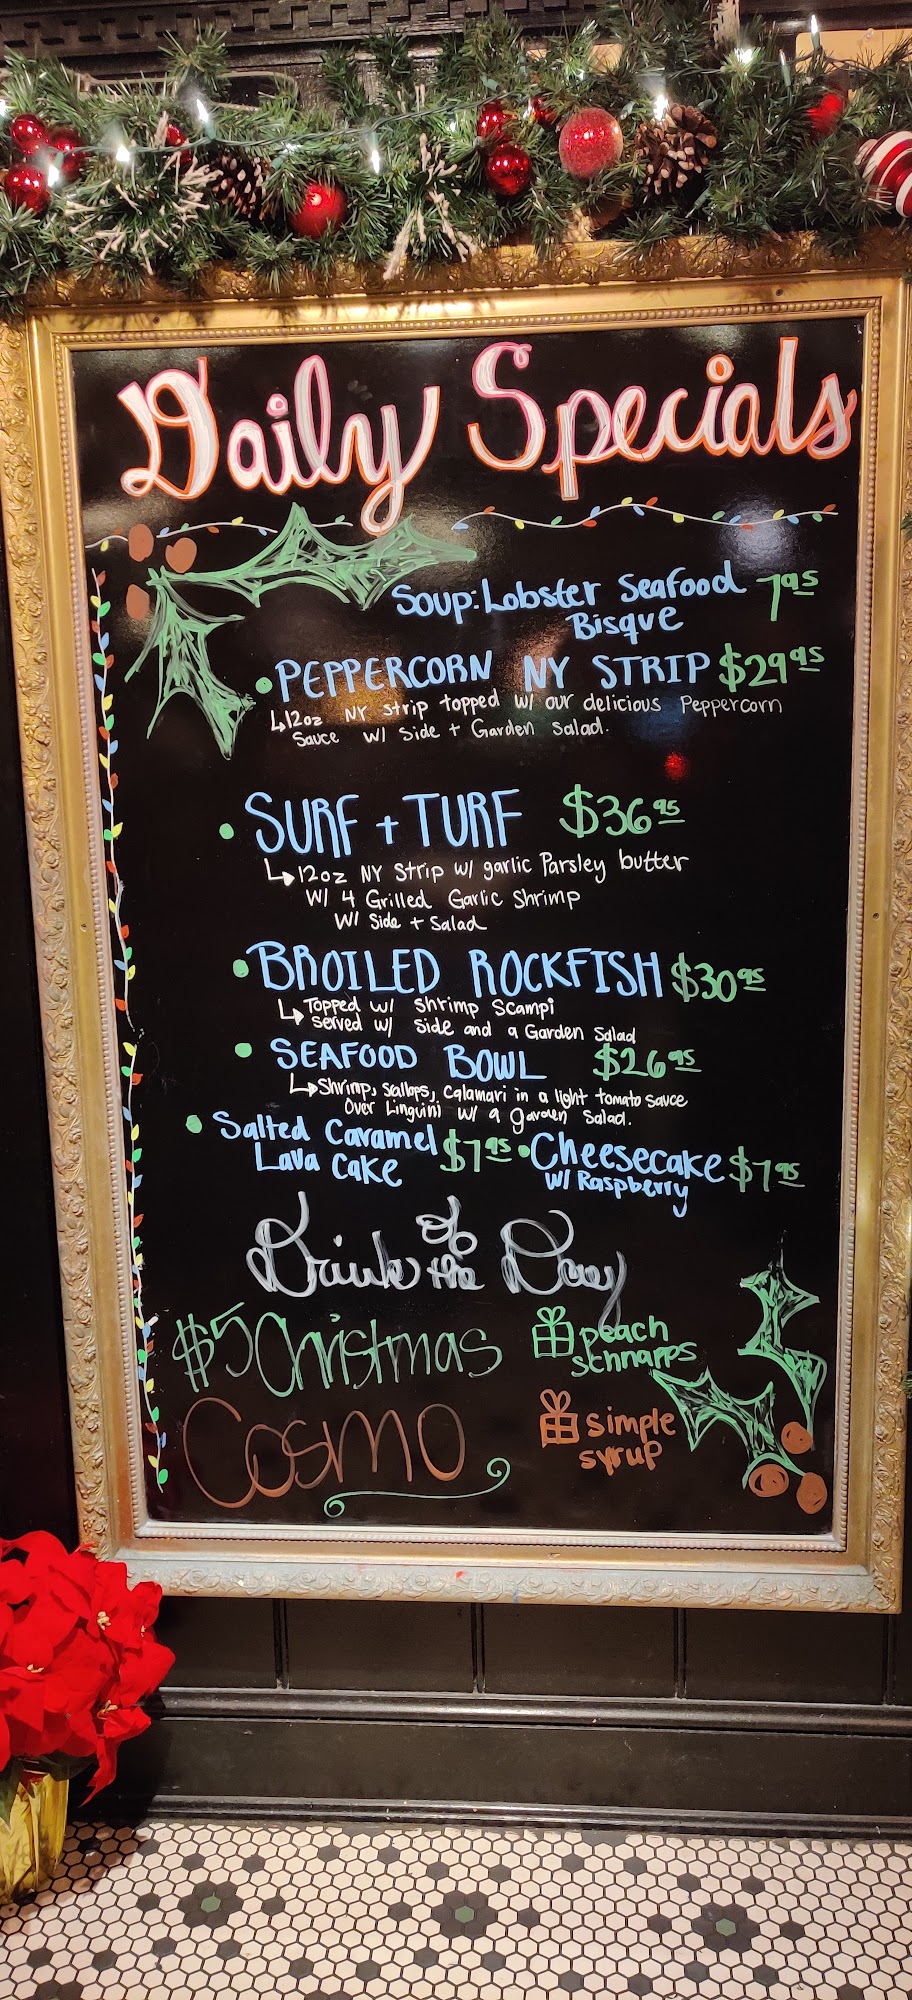 Daily Specials
Soup: Lobster Seafood 7.95
Bisque
• PEPPERCORN NY STRIP $29.95
↳12oz NY Strip topped w/ our delicious Peppercorn
Sauce w/ Side + Garden Salad.
• SURF + TURF $36.95
↳12oz NY Strip w/ garlic Parsley butter
w/ 4 Grilled Garlic Shrimp
w/ Side + Salad
• BROILED ROCKFISH $30.95
↳ Topped w/ Shrimp Scampi
served w/ side and a Garden Salad
• SEAFOOD BOWL $26.95
↳Shrimp, Scallops, Calamari in a light tomato sauce
Over Linguini w/ a garden Salad.
• Salted Caramel $7.95 • Cheesecake $7.95
Lava Cake w/ Raspberry
Drink of the Day
$5 Christmas
Cosmo
peach
schnapps
simple
syrup